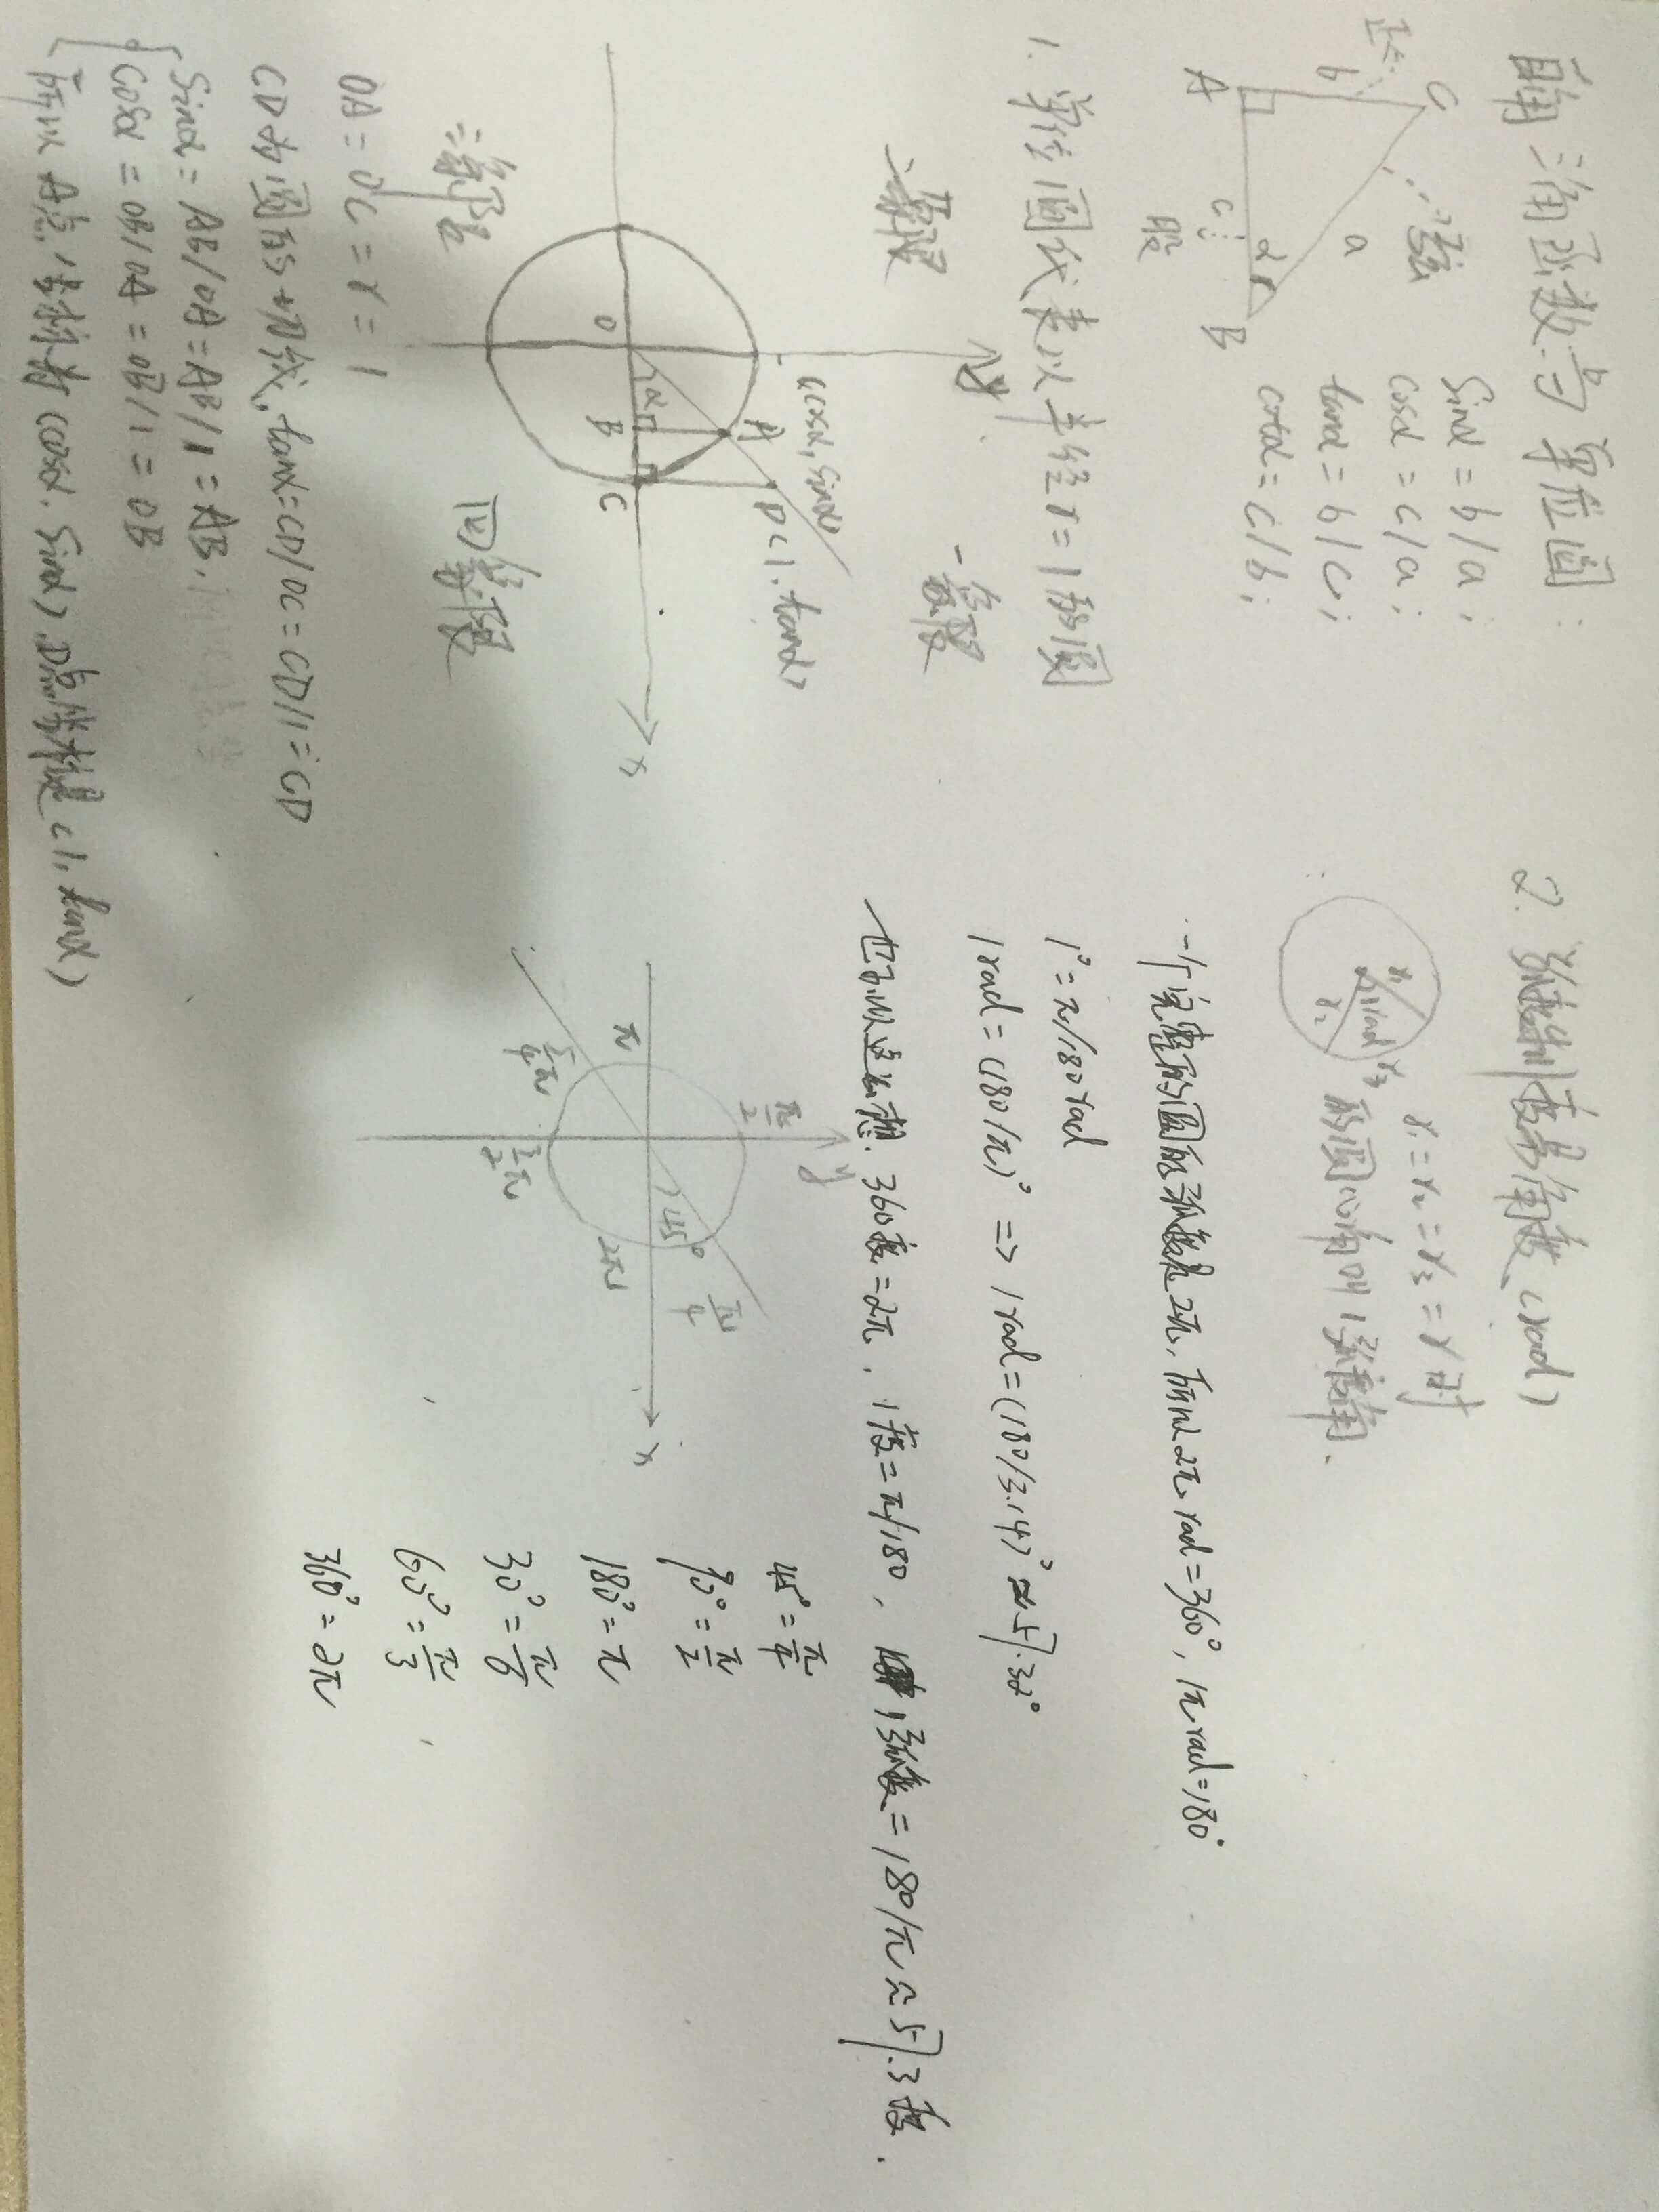 三角函数与单位圆:
C
b
A
c
股
α
B
a
弦
sinα = b/a;
cosα = c/a;
tanα = b/c;
cotα = c/b;
1. 单位圆代表以半径r=1的圆
y
二象限
一象限
A(cosα, sinα)
D(1, tanα)
O
α
B
C
x
三象限
四象限
OA = OC = r = 1
CD为圆的切线, tanα = CD/OC = CD/1 = CD
sinα = AB/OA = AB/1 = AB;
cosα = OB/OA = OB/1 = OB
所以A点坐标为(cosα, sinα) D点坐标是(1, tanα)
2. 弧度制度量角度 (rad)
r1
1rad
r2
r3
r1 = r2 = r3 = r时
的圆心角叫1弧度角.
一个完整的圆的弧度是2π, 所以2π rad = 360°, 1π rad = 180°
1° = π/180 rad
1rad = (180/π)° => 1rad = (180/3.14)° ≈ 57.32°
也可以这么想. 360度 = 2π, 1度 = π/180, 1弧度 = 180/π ≈ 57.3度.
y
π/2
π/4
π
45°
2π
x
5/4π
3/2π
45° = π/4
90° = π/2
180° = π
30° = π/6
60° = π/3
360° = 2π